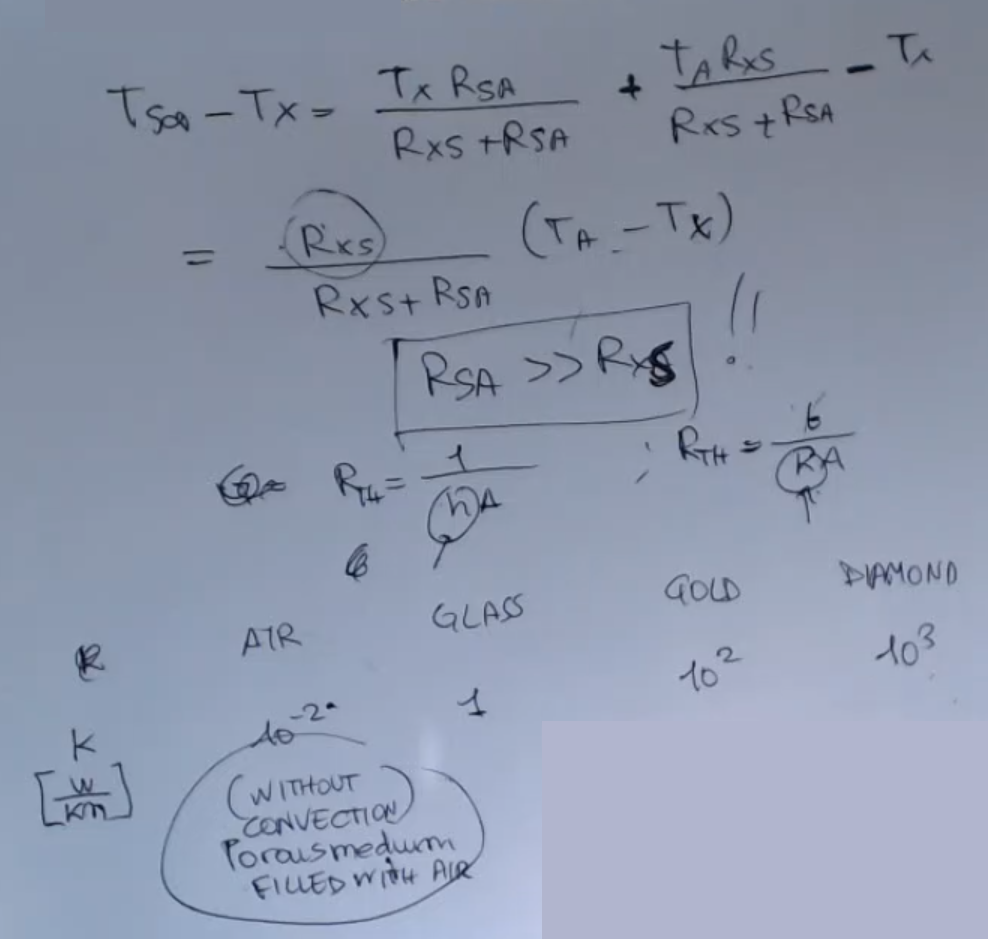 T_S∞ - T_X = T_X R_SA / (R_XS + R_SA) + T_A R_XS / (R_XS + R_SA) - T_X
= R_XS / (R_XS + R_SA) (T_A - T_X)
R_SA >> R_XS !!
R_TH = 1 / (hA) ; R_TH = t / (kA)
AIR GLASS GOLD DIAMOND
K 10^-2 1 10^2 10^3
[W/Km]
(WITHOUT
CONVECTION)
Porous medium
FILLED WITH AIR